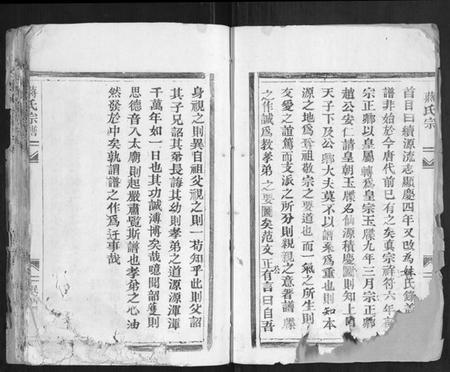 蔣氏宗
首目曰續源流志顯慶四年又改為姓氏錄
譜非始於今唐代前已有之矣真宗祥符六年
宗正卿以皇屬轉為皇宗玉牒九年三月宗正卿
趙公安仁請皇朝玉牒名仙源積慶圖則知上
天子下及公卿大夫莫不以譜系為重也則知本
源之地為尊祖敬宗之要道也而一氣之所生則
友愛之誼篤而支派之所分則親親之意著譜牒
之作誠為教孝弟之要圖矣范文正公有言曰自吾
身視之則異自祖父視之則一茍知乎此則父詔
其子兄詔其弟長誨其幼則孝弟之道源源渾渾
千萬年如一日也其功誠溥博矣哉噫聞韶護則
思德音入太廟則起嚴肅覽斯譜也孝弟之心油
然發於中矣孰謂譜之作為迂事哉
蔣氏宗譜